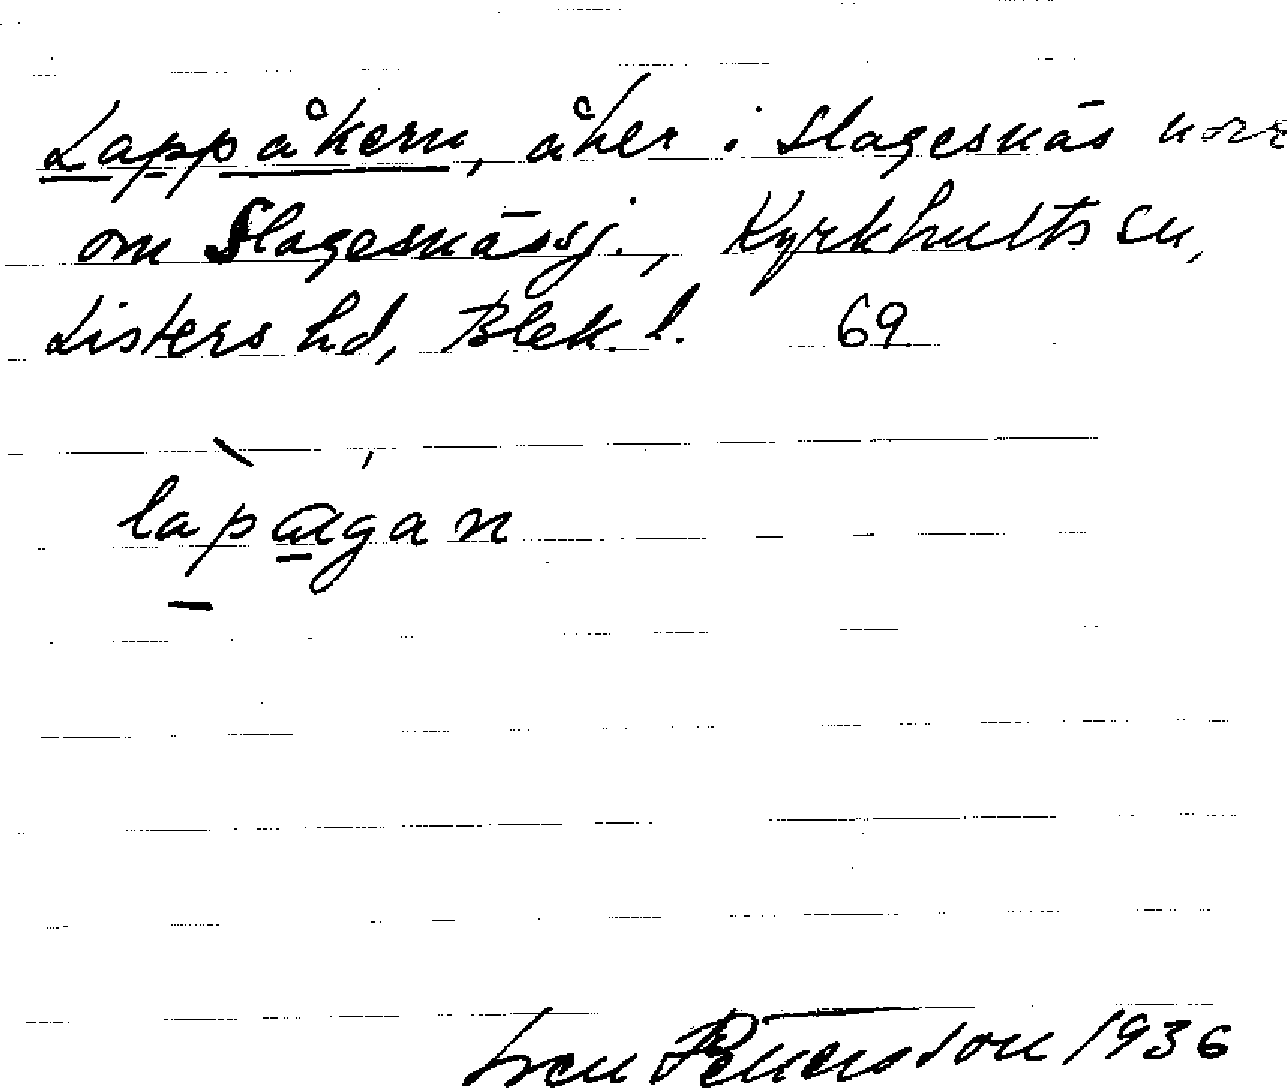 Lappåkern, åker i Slagesnäs norr
om Slagesnässj., Kyrkhults sn,
Listers hd, Blek. l. 69
Sven Petersson 1936